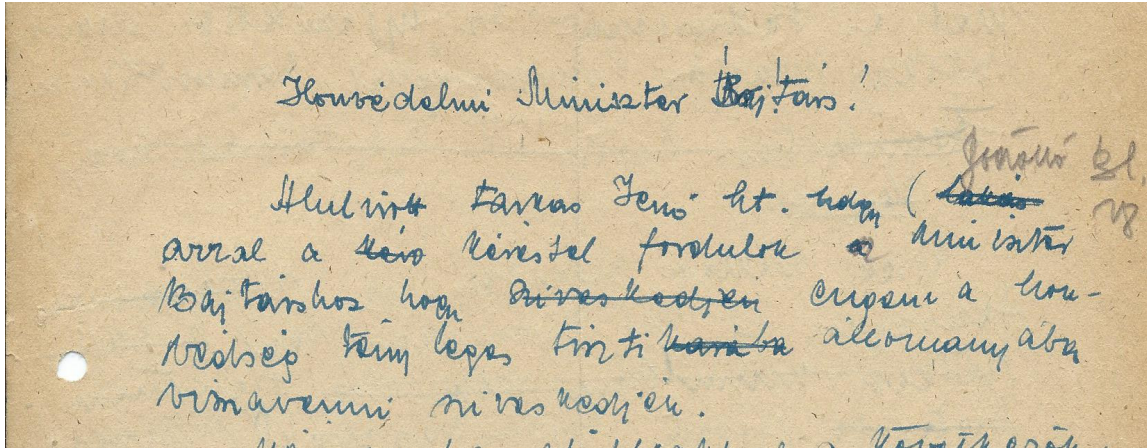 Honvédelmi Miniszter Bajtárs!
Alulírott Farkas Jenő ht. hdgy ( lakás
arral a kérő kéréssel fordulok a Miniszter
Bajtárshoz hogy szíveskedjen engem a hon-
védség tényleges tiszti karába állományába
visszavenni szíveskedjék.